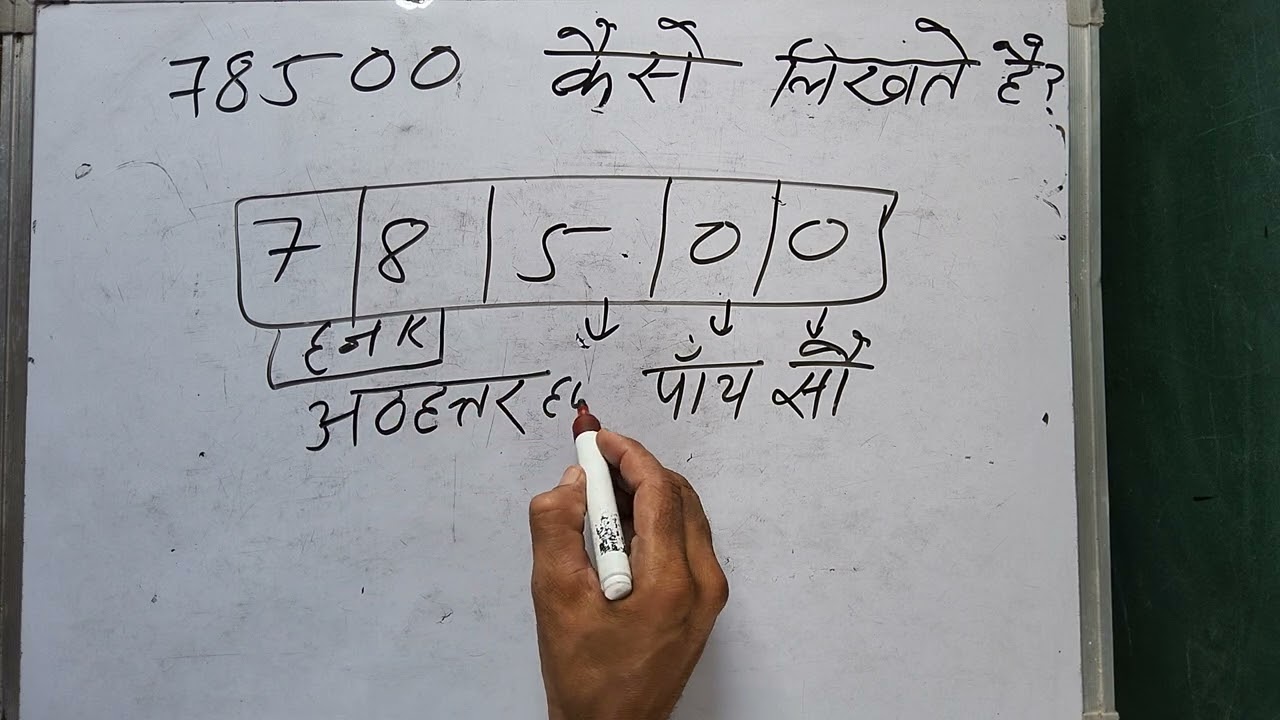 78500 कैसे लिखते है?
7 8 5 0 0
अठहत्तर पाँच सौ